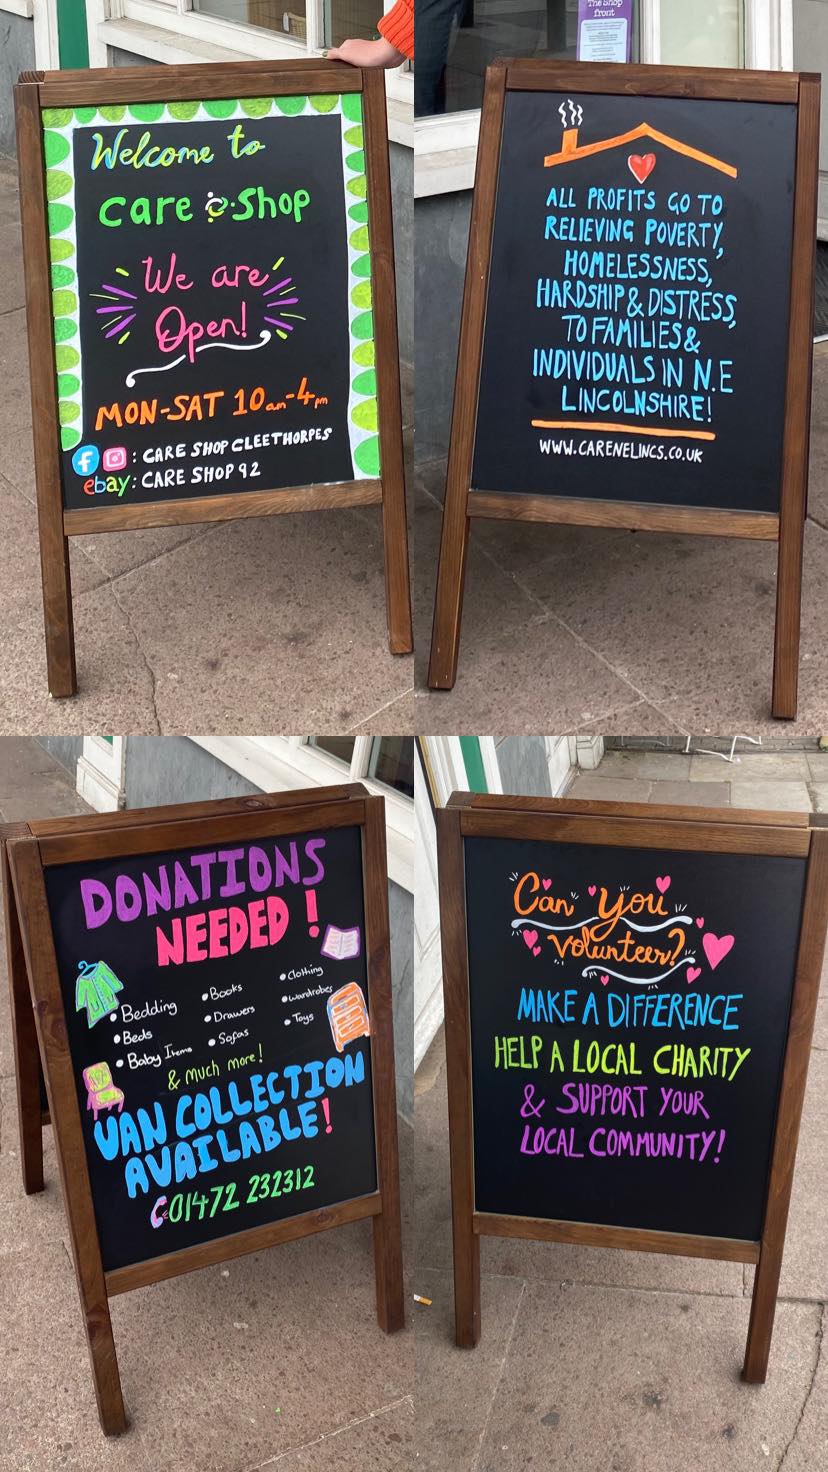 Welcome to
Care Shop
We are
Open!
MON-SAT 10am-4pm
: CARE SHOP CLEETHORPES
ebay: CARE SHOP 92
The Shop
front
ALL PROFITS GO TO
RELIEVING POVERTY,
HOMELESSNESS,
HARDSHIP & DISTRESS,
TO FAMILIES &
INDIVIDUALS IN N.E
LINCOLNSHIRE!
WWW.CARENELINCS.CO.UK
DONATIONS
NEEDED!
• Bedding
• Beds
• Baby Items
• Books
• Drawers
• Sofas
• Clothing
• Wardrobes
• Toys
& much more!
VAN COLLECTION
AVAILABLE!
01472 232312
Can you
volunteer?
MAKE A DIFFERENCE
HELP A LOCAL CHARITY
& SUPPORT YOUR
LOCAL COMMUNITY!